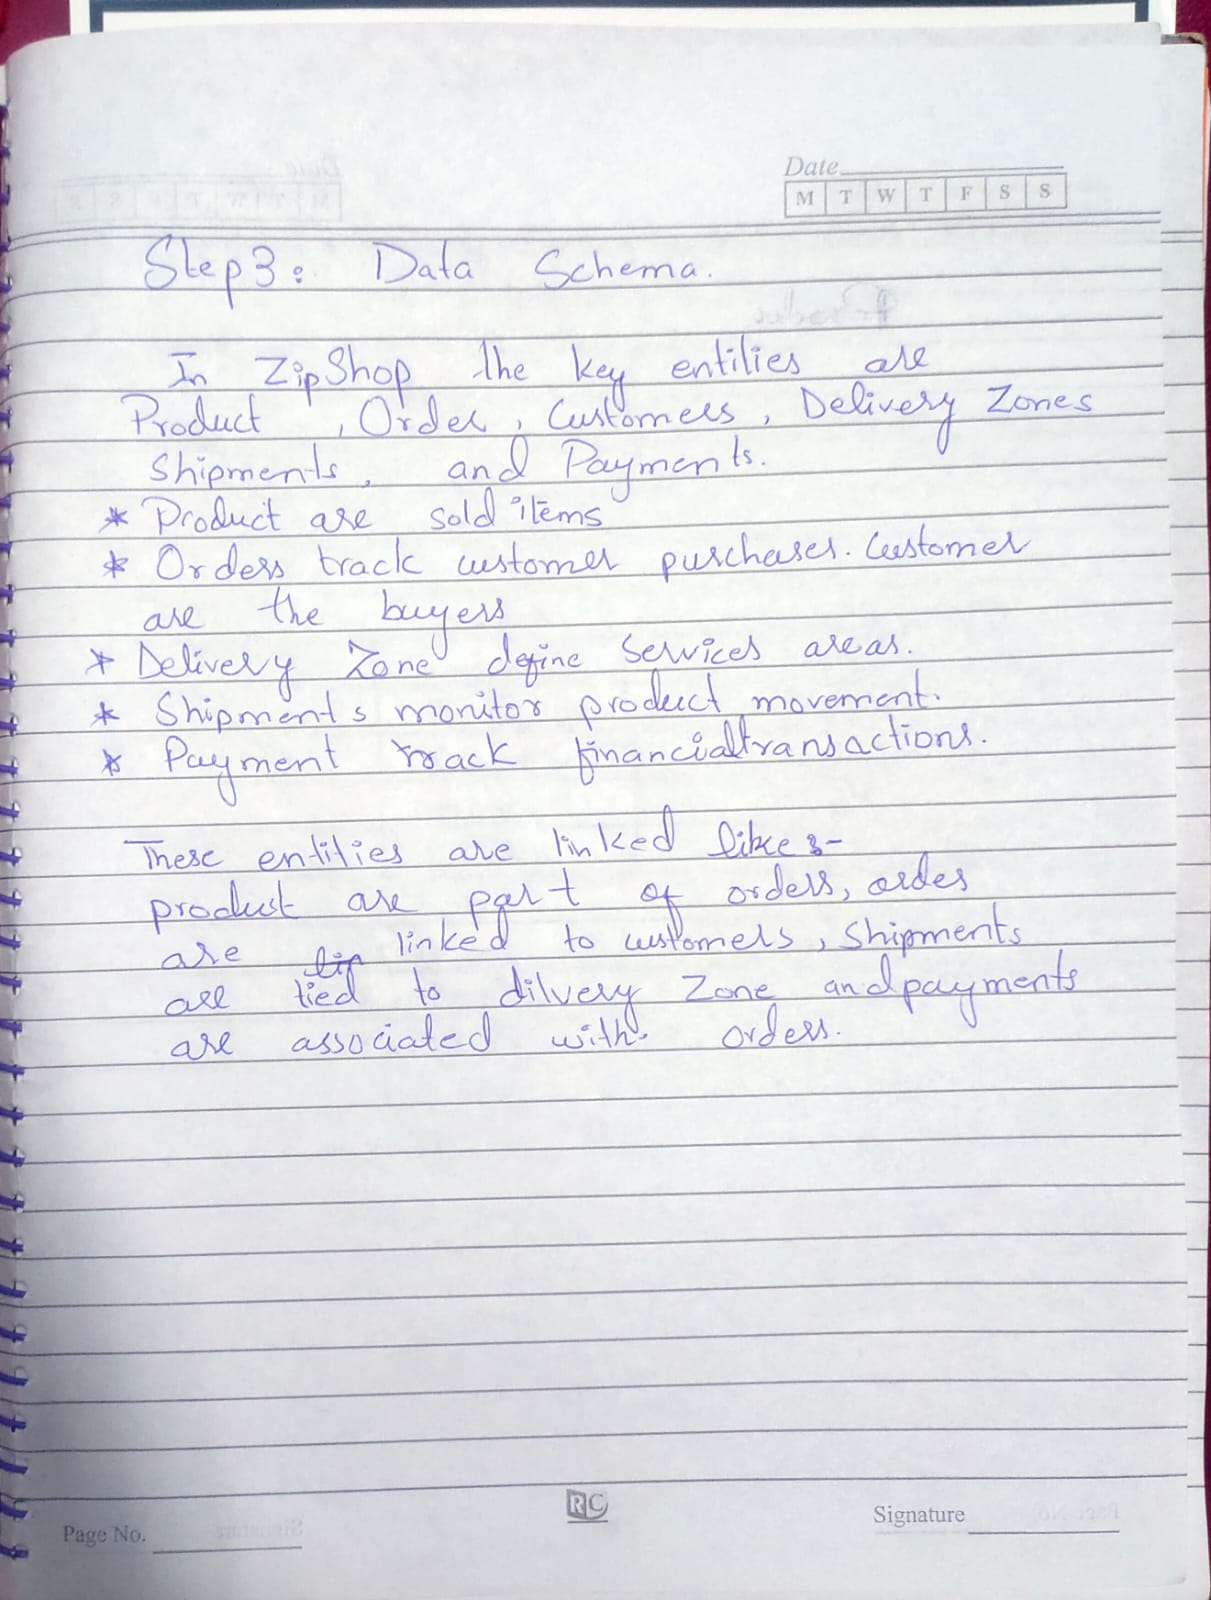 Date
M T W T F S S
Step 3: Data Schema.
In ZipShop the key entities are
Product , Order , Customers , Delivery Zones
Shipments , and Payments.
* Product are sold items
* Orders track customer purchases. Customer
are the buyers
* Delivery Zone define Services areas.
* Shipments monitor product movement.
* Payment track financialtransactions.
These entities are linked like :-
product are part of orders, order
are linked to customers , Shipments
are tied to dilvery Zone and payments
are associated with orders.
RC
Page No.
Signature